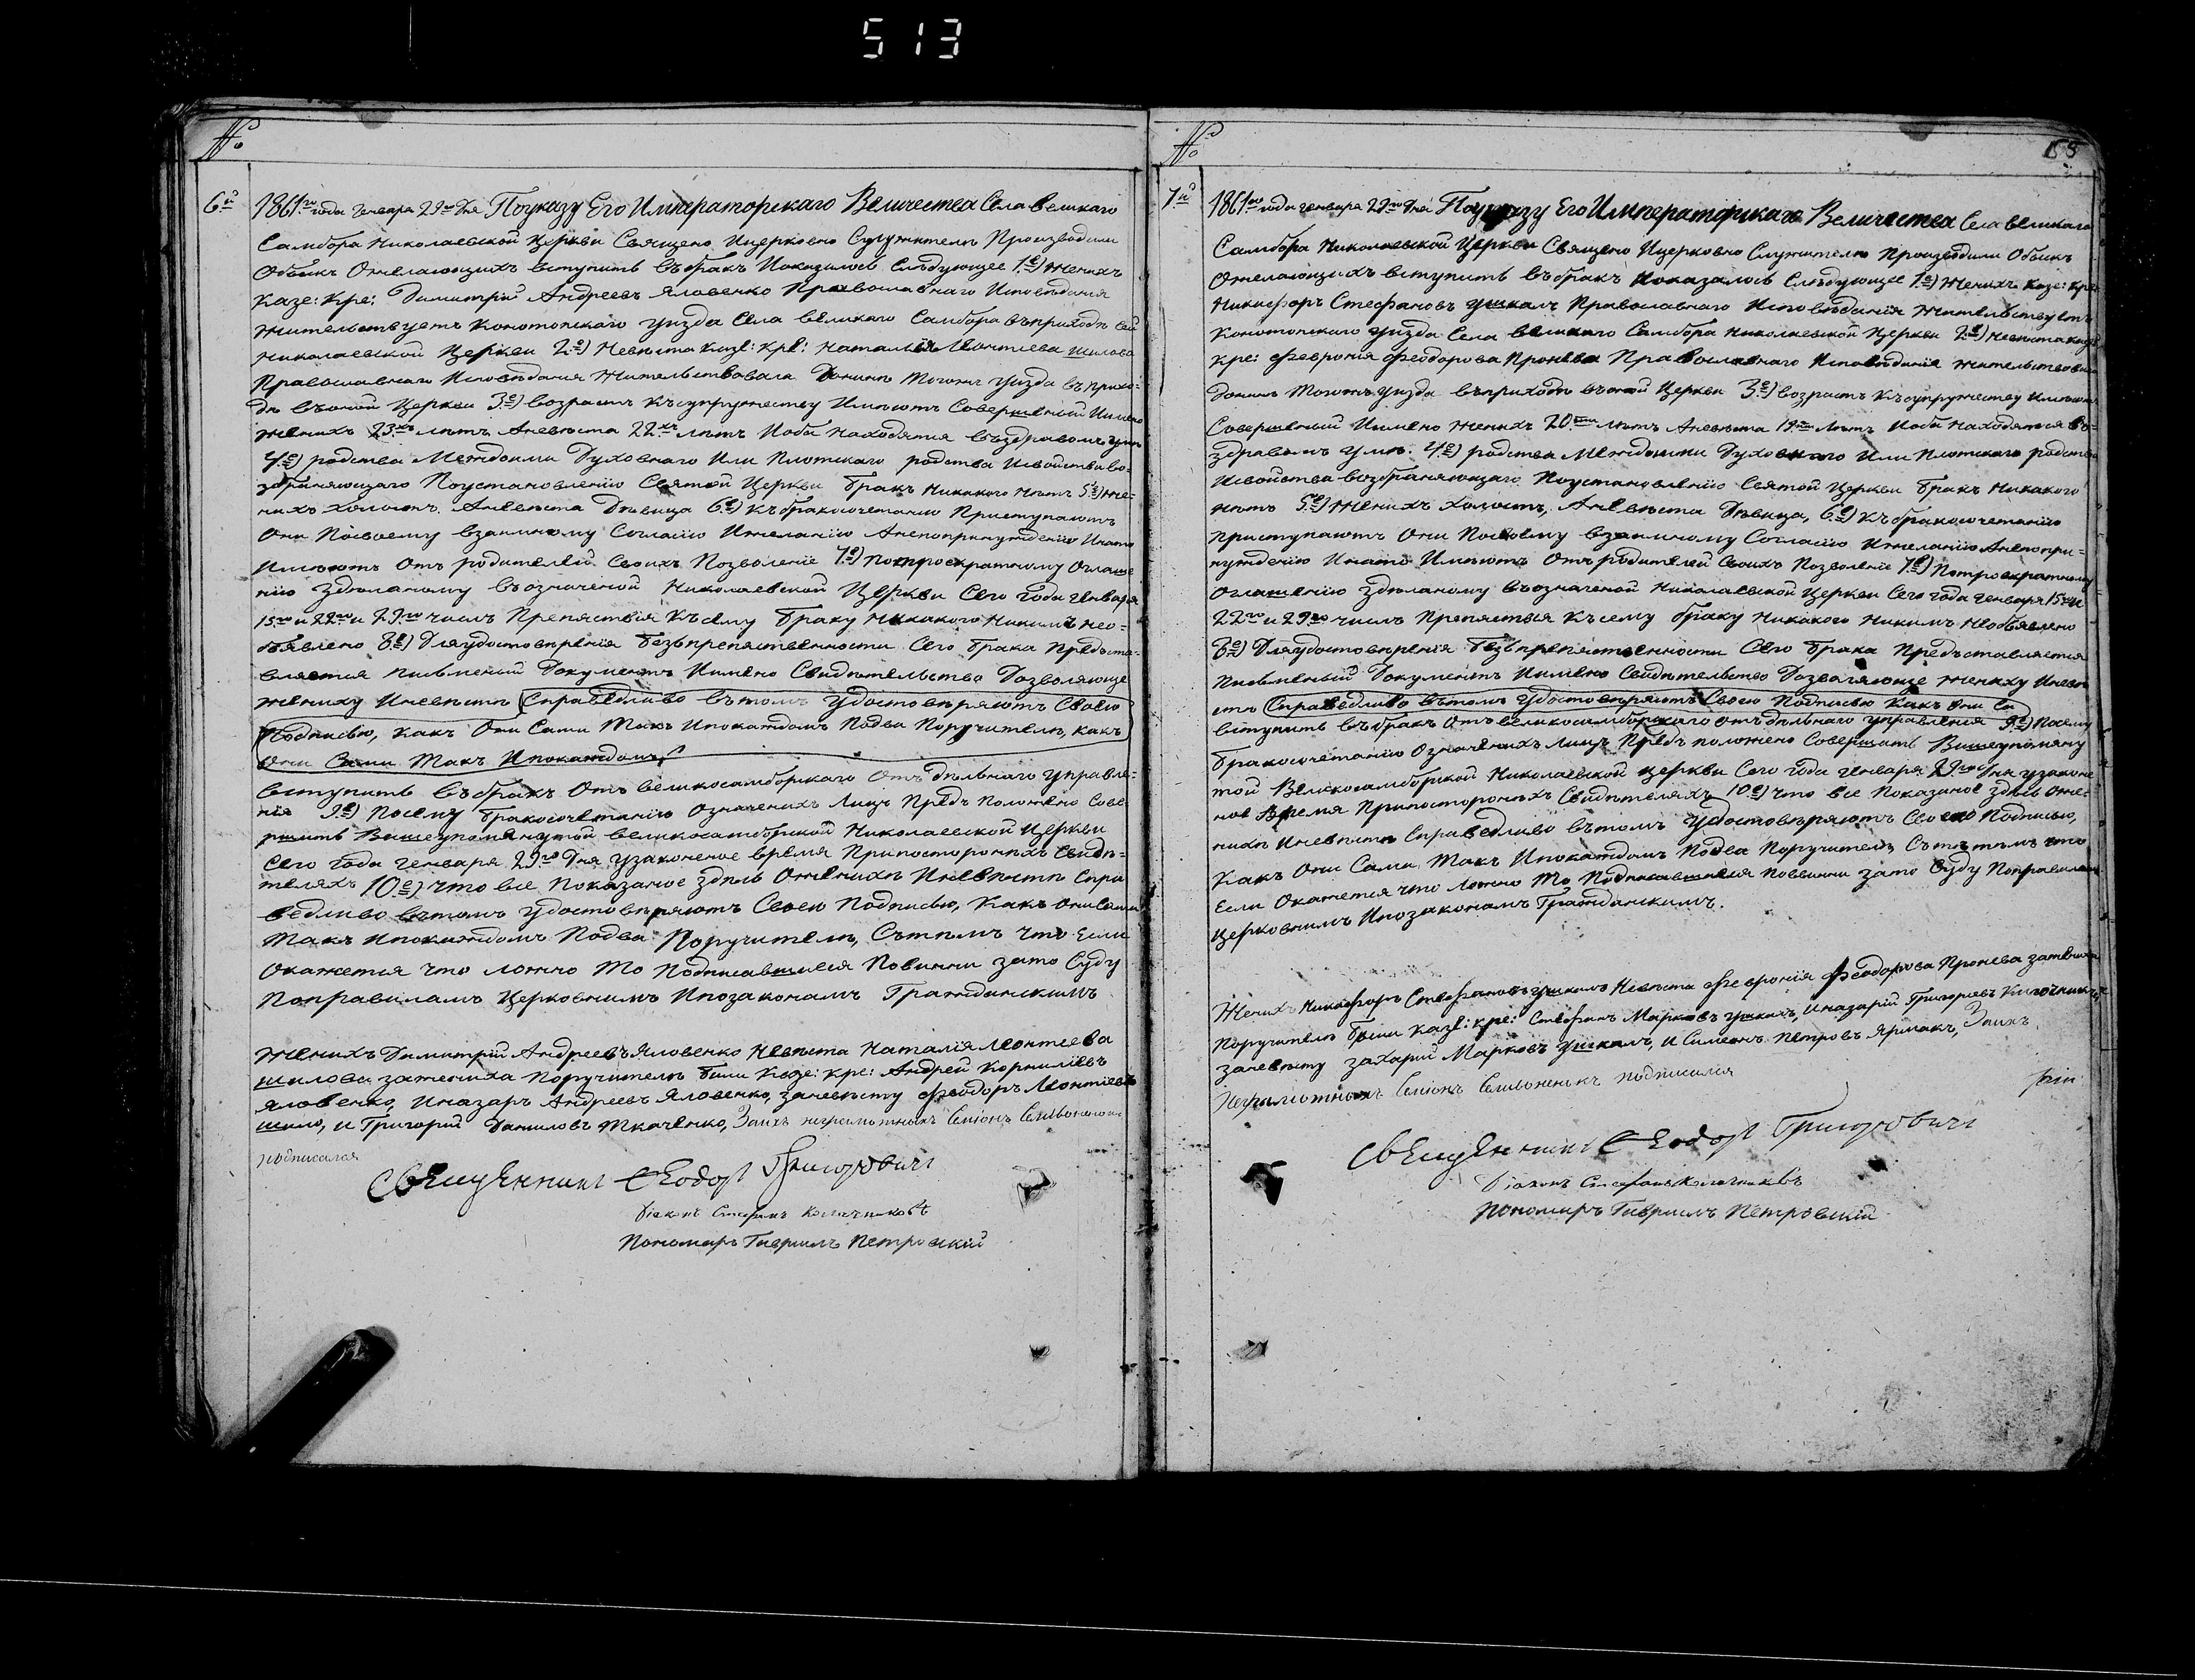 513
№
6й
1861го года Генваря 29го дня Поуказу Его Императорскаго Величества Села Великаго
Самбора Николаевской Церкви Священо Ицерковно Служители Производили
Обыскъ Ожелающихъ вступить въбракъ Ипоказалось Слѣдующее 1е) Женихъ
Казе: Кре: Димитрій Андреевъ Яловенко Православнаго Исповѣданія
Жительствуетъ Конотопскаго уизда Села Великаго Самбора въприходѣ
Николаевской Церкви 2е) Невѣста Казе: Кре: Наталія Леонтіева Шилова
Православнаго Исповѣданія Жительствовала Донинѣ Тогожъ уизда въприхо-
дѣ въоной Церкви 3е) возрастъ Къ супружеству Имѣютъ Совершеный Имено
Женихъ 23хъ лѣтъ Аневѣста 22хъ лѣтъ Иоба Находятся въздравомъ умѣ
4е) родства Междоими Духовнаго Или Плотскаго родства Исвойства во-
збраняющаго Поустановленію Святой Церкви бракъ Никакого Нѣтъ 5е) Же-
нихъ холостъ Аневѣста Дѣвица 6е) Къбракосочетанію Приступаютъ
Они Посвоему взаимному Согласію Ижеланію Анепопринужденію Инато
Имѣютъ Отъ родителей Своихъ Позволеніе 7е) Потроекратному Оглаше
нію Здѣланому въозначеной Николаевской Церкви Сего Года Генваря
15го и 22го и 29го числъ Препяствія Късему браку Никакого Никимъ Нео-
бъявлено 8е) Дляудостовѣренія безъпрепяственности Сего брака Предъста-
вляется Письменый Документъ Имено Свидѣтельство Дозволяюще
Жениху Иневѣстѣ Справедливо вътомъ удостовѣряютъ Своею
Подписью, Какъ Они Сами Такъ Ипокаждомъ Подва Поручителя, какъ
Они Сами Такъ Ипокаждомъ
вступить въбракъ Отъ великосамборскаго Отъдѣльнаго управле-
нія 9е) Посему бракосочетанію Означенихъ Лицъ Предъ Положено Сове
ршить Вишеупомянутой великосамборской Николаевской Церкви
Сего Года Генваря 29го Дня узаконеное время Припостороннихъ Свидѣ-
теляхъ 10е) что все Показаное здѣсь Оженихѣ Иневѣстѣ Спра
ведливо вътомъ удостовѣряютъ Своею Подписью, Какъ Они Сами
Такъ Ипокаждомъ Подва Поручителя, Сътѣмъ Что Если
Окажется Что ложно То Подписавшиеся Повинни зато Суду
Поправиламъ Церковнимъ Ипозаконамъ Гражданскимъ
Женихъ Димитрій Андреевъ Яловенко Невѣста Наталія Леонтеева
Шилова зажениха Поручители били Казе: Кре: Андрей Корниліевъ
Яловенко, Иназаръ Андреевъ Яловенко, заневѣсту Феодоръ Леонтіевъ
Шило, и Григорій Даниловъ Ткаченко, Заихъ неграмотныхъ Симіонъ
подписался
Священникъ Феодоръ Григоровичъ
Діаконъ Стефанъ
Пономаръ Гавриилъ Петровскій
№
155
7й
1861го года генваря 29го дня Поуказу Его Императорскаго Величества Села Великаго
Самбора Николаевской Церкви Священо Ицерковно Служители Производили Обыскъ
Ожелающихъ вступить въбракъ Ипоказалось Слѣдующее 1е) Женихъ Казе: Кре:
Никифоръ Стефановъ Ушкалъ Православнаго Исповѣданія Жительствуетъ
Конотопскаго уизда Села Великаго Самбора Николаевской Церкви 2е) Невѣста Казе:
Кре: Февронія Феодорова Пронева Православнаго Исповѣданія Жительствовала
Донинѣ Тогожъ уизда въприходѣ въоной Церкви 3е) возрастъ Късупружеству Имѣютъ
Совершеный Имено Женихъ 20ти лѣтъ Аневѣста 19ти лѣтъ Иоба Находятся въ-
здравомъ умѣ: 4е) родства Междоими Духовнаго Или Плотскаго родства
Исвойства возбраняющаго Поустановленію Святой Церкви бракъ Никакого
нѣтъ 5е) Женихъ холостъ, Аневѣста Дѣвица, 6е) Къбракосочетанію
Приступаютъ Они Посвоему взаимному Согласію Ижеланію Анепопри-
нужденію Инато Имѣютъ Отъродителей Своихъ Позволеніе 7е) Потроекратному
Оглашенію здѣланому въозначеной Николаевской Церкви Сего года Генваря 15го и
22го и 29го числъ Препяствія Късему браку Никакого Никимъ Необъявлено
8е) Дляудостовѣренія безъпрепяственности Сего брака Предъставляется
Письменый Документъ Имено Свидѣтельство Дозваляюще Жениху Иневѣ
стѣ Справедливо вътомъ удостовѣряютъ Своею Подписью Какъ Они Са
вступить въбракъ Отъ великосамборскаго отъдѣльнаго управленія 9е) Посему
бракосочетанію Означенихъ Лицъ Предъ положено Совершить Вишеупомяну
той Великосамборской Николаевской Церкви Сего года Генваря 29го Дня узаконе
ное Время Припостороннихъ Свидѣтеляхъ 10е) что все Показаное здѣсь Оже-
нихѣ Иневѣстѣ Справедливо вътомъ удостовѣряютъ Своею Подписью,
Какъ Они Сами Такъ Ипокаждомъ Подва Поручителя Сътѣмъ что
Если Окажется что ложно То Подписавшиеся Повинни зато Суду Поправиламъ
Церковнимъ Ипозаконамъ Гражданскимъ.
Женихъ Никифоръ Стефановъ Ушкалъ Невѣста Февронія Феодорова Пронева зажениха
Поручители били Казе: Кре: Стефанъ Марковъ Ушкалъ, Иназарій Григоріевъ
заневѣсту Захарій Марковъ Ушкалъ, и Симеонъ Петровъ Ярмакъ, Заихъ
неграмотныхъ Симіонъ подписался
Священникъ Феодоръ Григоровичъ
Діаконъ Стефанъ
Пономаръ Гавриилъ Петровскій